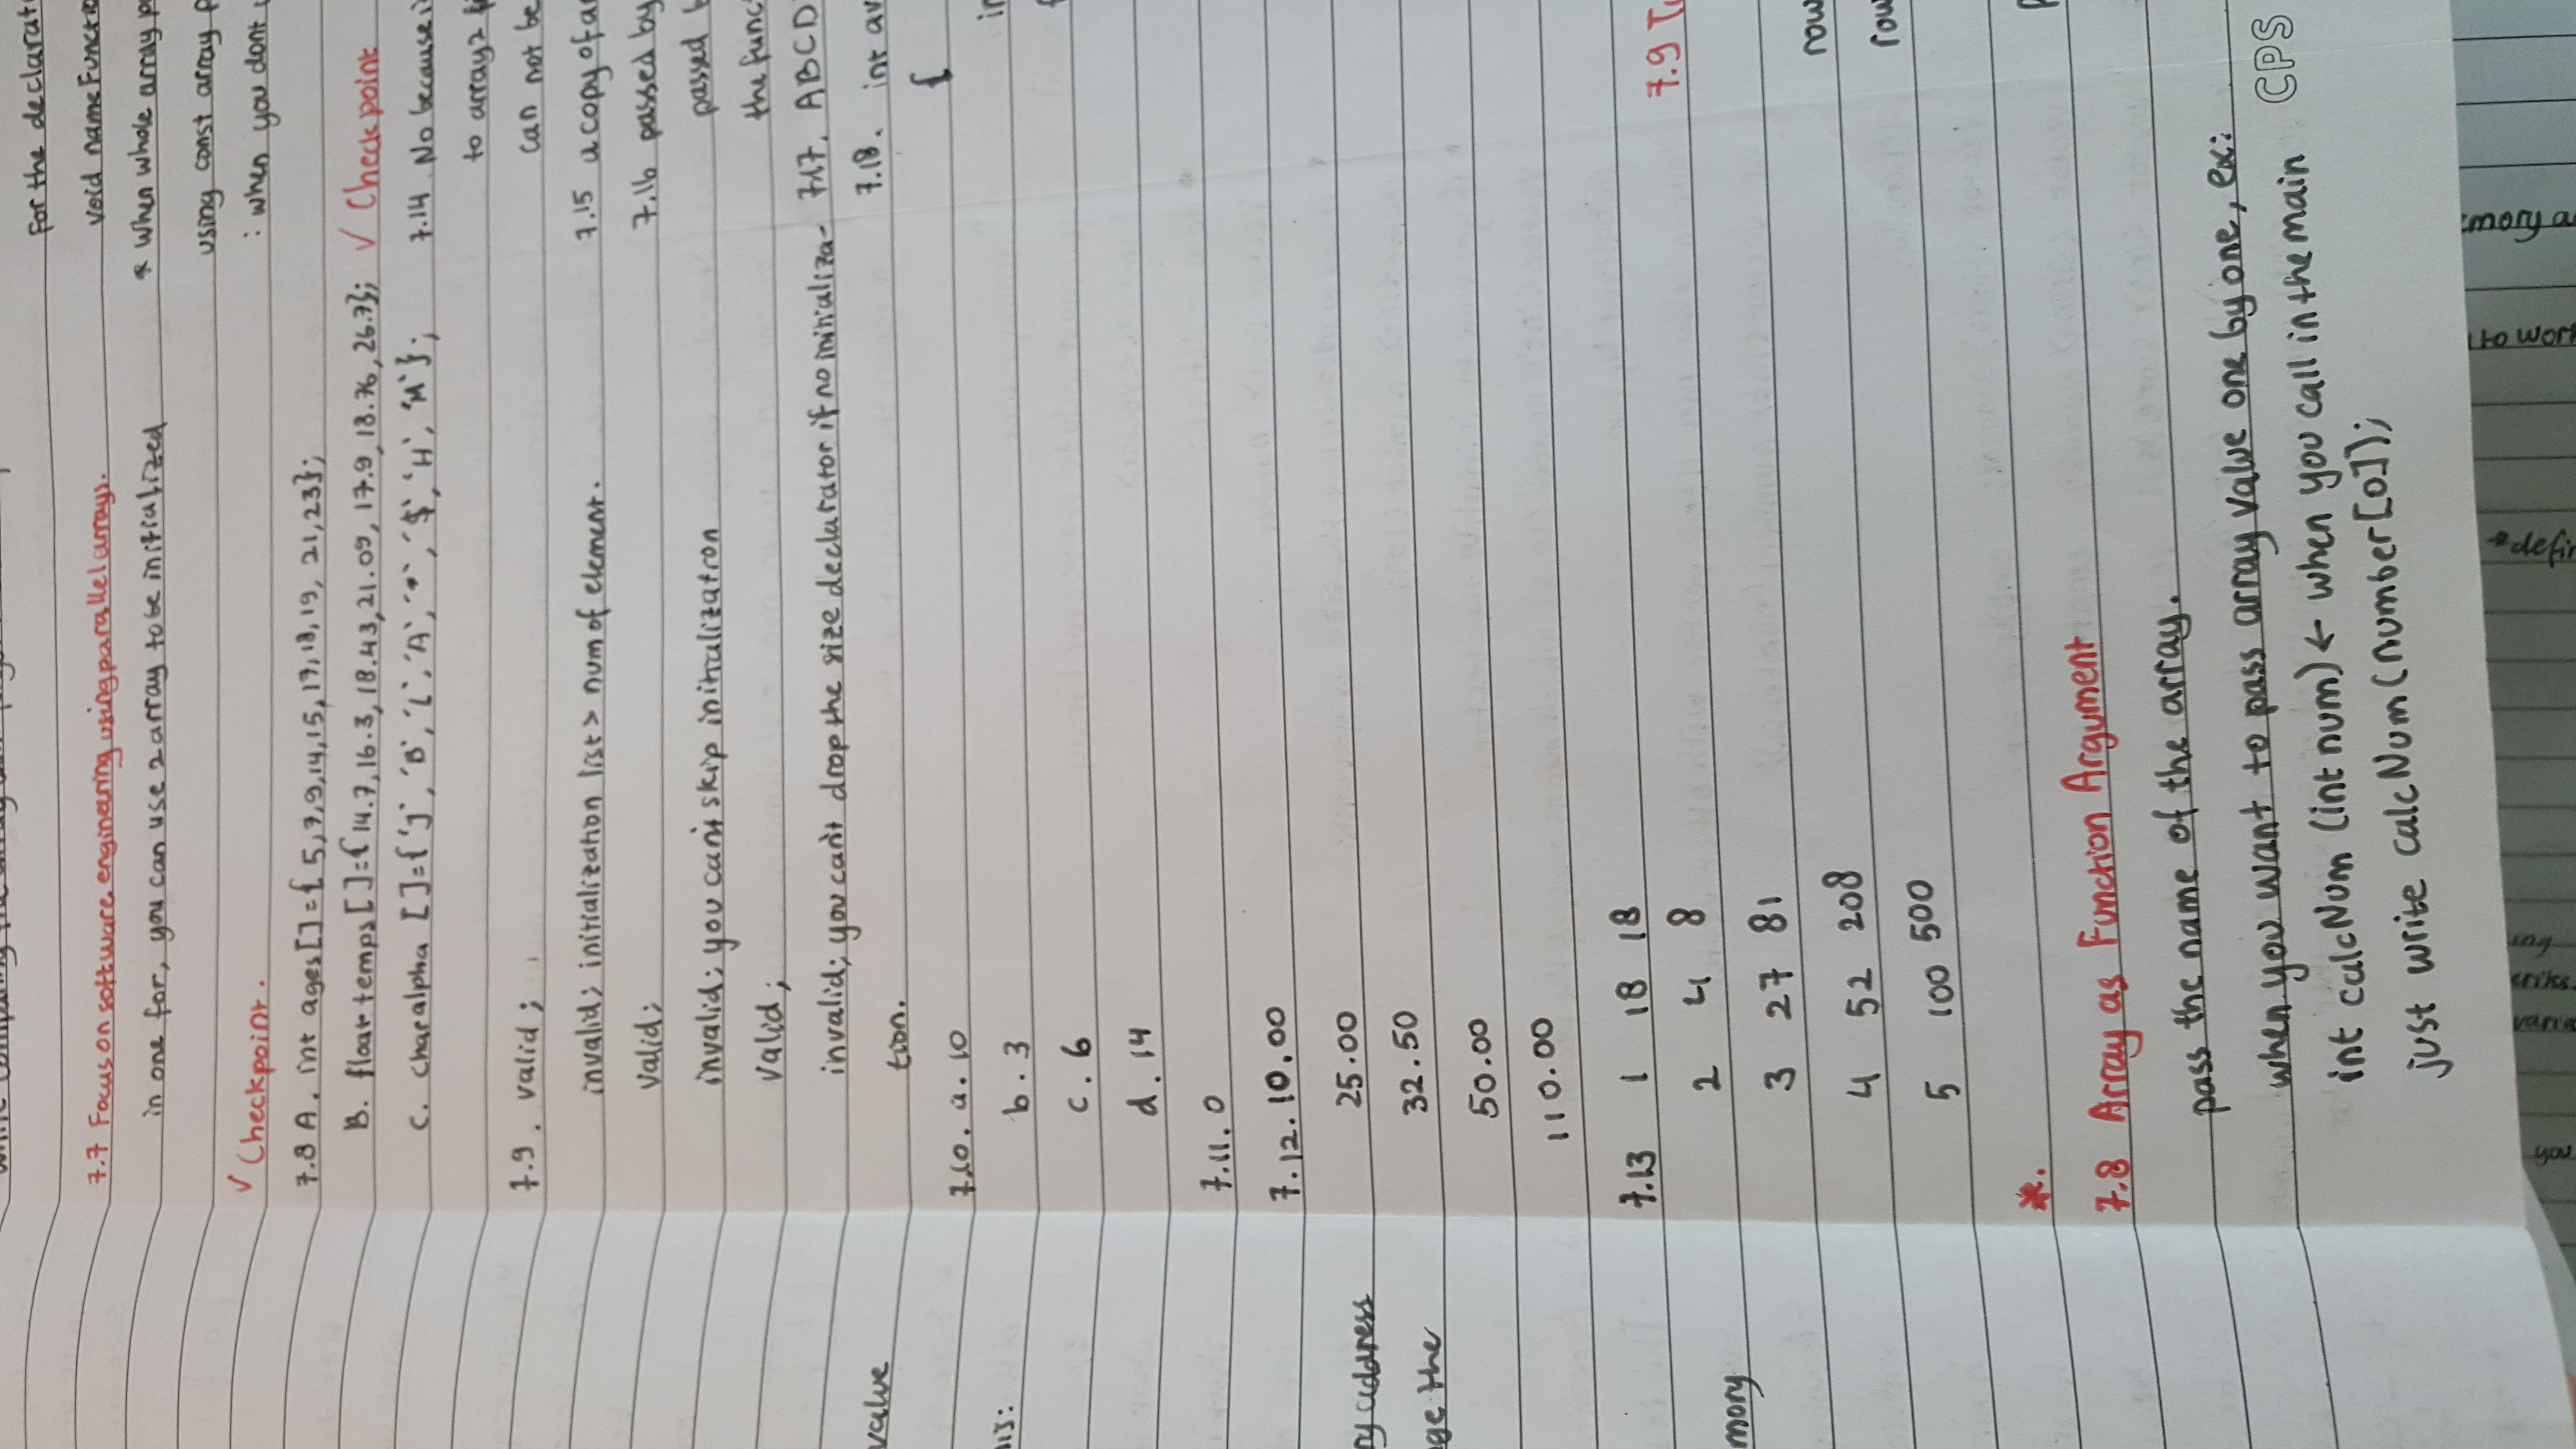 7.7 Focus on software engineering using parallel arrays.
in one for, you can use 2 array to be initialized
✓ Checkpoint.
7.8 A. int ages[]={ 5,7,9,14,15,17,18,19, 21,23};
B. float temps[]={14.7,16.3,18.43,21.09, 17.9,18.76,26.7};
C. char alpha []={'J','B','L','A','*','$','H','M'};
7.9. valid;
invalid; initialization list > num of element.
valid;
invalid; you can't skip initialization
valid;
invalid; you can't drop the size declarator if no initializa-
tion.
7.10. a. 10
b. 3
c. 6
d. 14
7.11. 0
7.12. 10.00
25.00
32.50
50.00
110.00
7.13 1 18 18
2 4 8
3 27 81
4 52 208
5 100 500
*.
7.8 Array as Function Argument
pass the name of the array.
when you want to pass array value one by one, ex:
int calcNum (int num) ← when you call in the main
just write calcNum(number[0]);
value
ry address
ge the
mory
For the declarat
void nameFunctio
* When whole array p
using const array p
: when you dont
✓ Checkpoint
7.14. No because i
to array2
can not be
7.15 a copy of a
7.16 passed by
passed b
the func
7.17. ABCD
7.18. int av
{
7.9 T
row
row
CPS